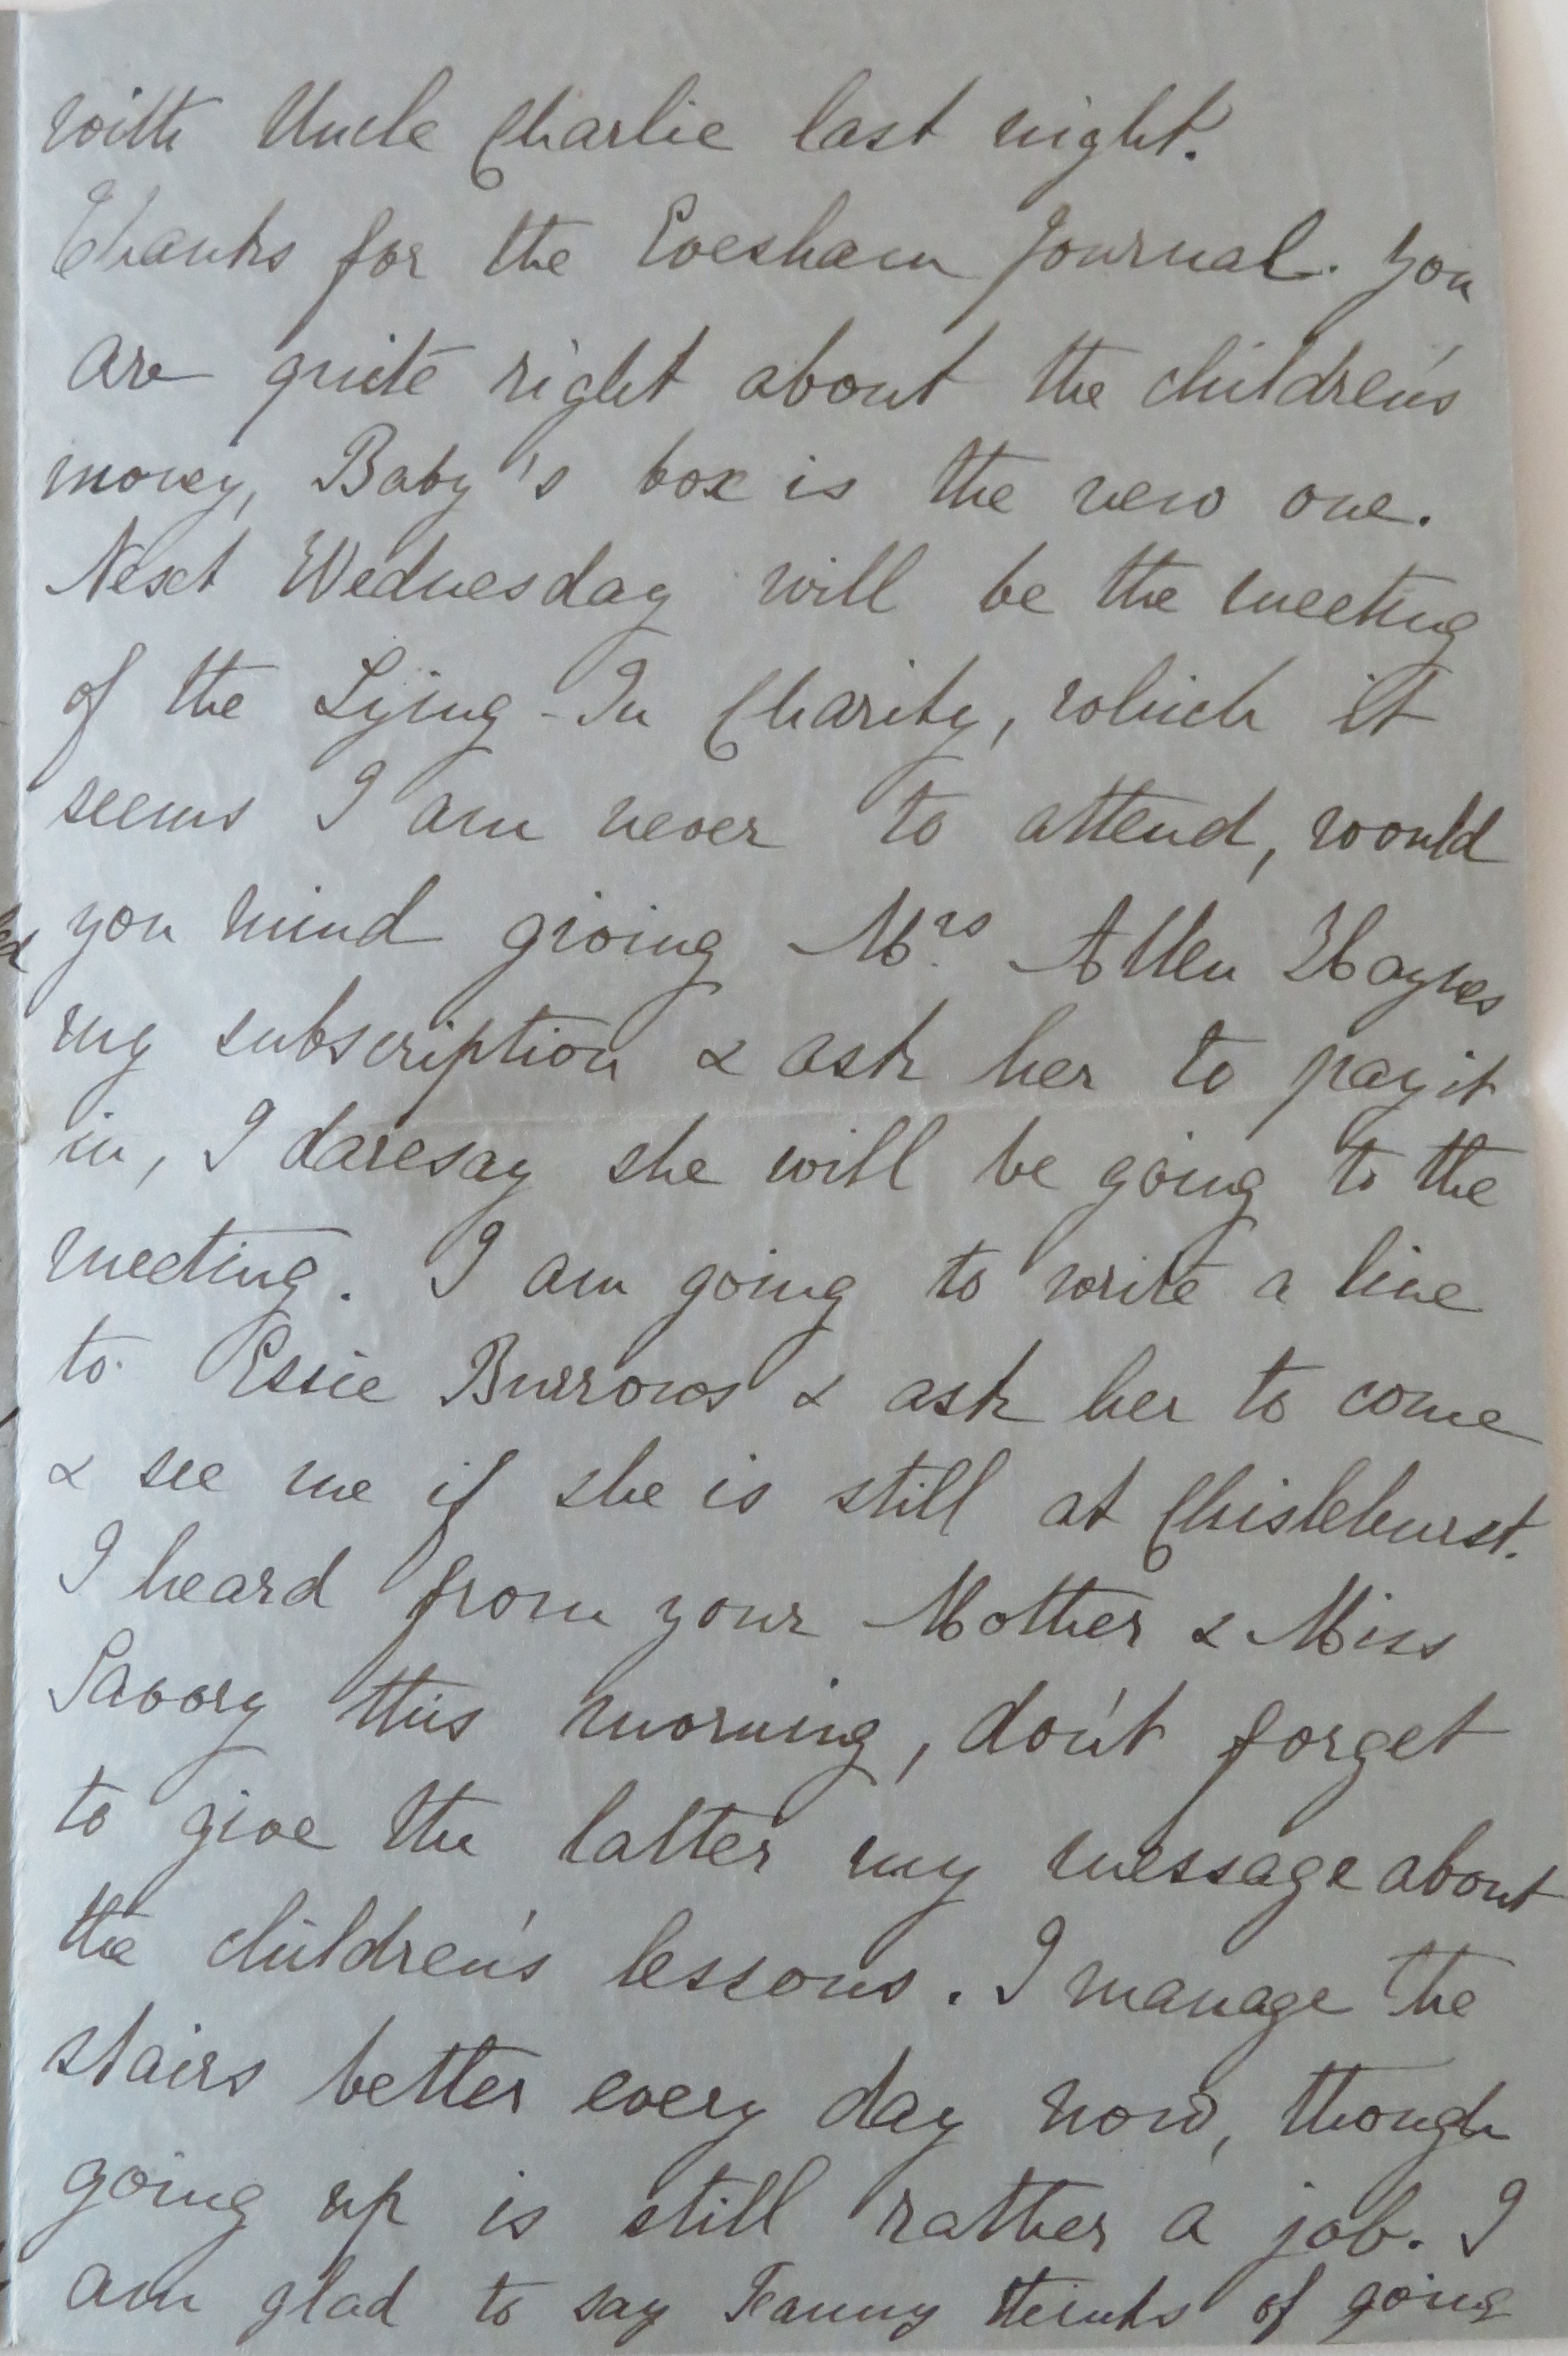 with Uncle Charlie last night.
Thanks for the Evesham Journal. You
are quite right about the children's
money, Baby's box is the new one.
Next Wednesday will be the meeting
of the Lying-In Charity, which it
seems I am never to attend, would
you mind giving Mrs Allen Haynes
my subscription & ask her to pay it
in, I daresay she will be going to the
meeting. I am going to write a line
to Essie Burrows & ask her to come
& see me if she is still at Chislehurst.
I heard from your Mother & Miss
Savory this morning, don't forget
to give the latter my message about
the children's lessons. I manage the
stairs better every day now, though
going up is still rather a job. I
am glad to say Fanny thinks of going